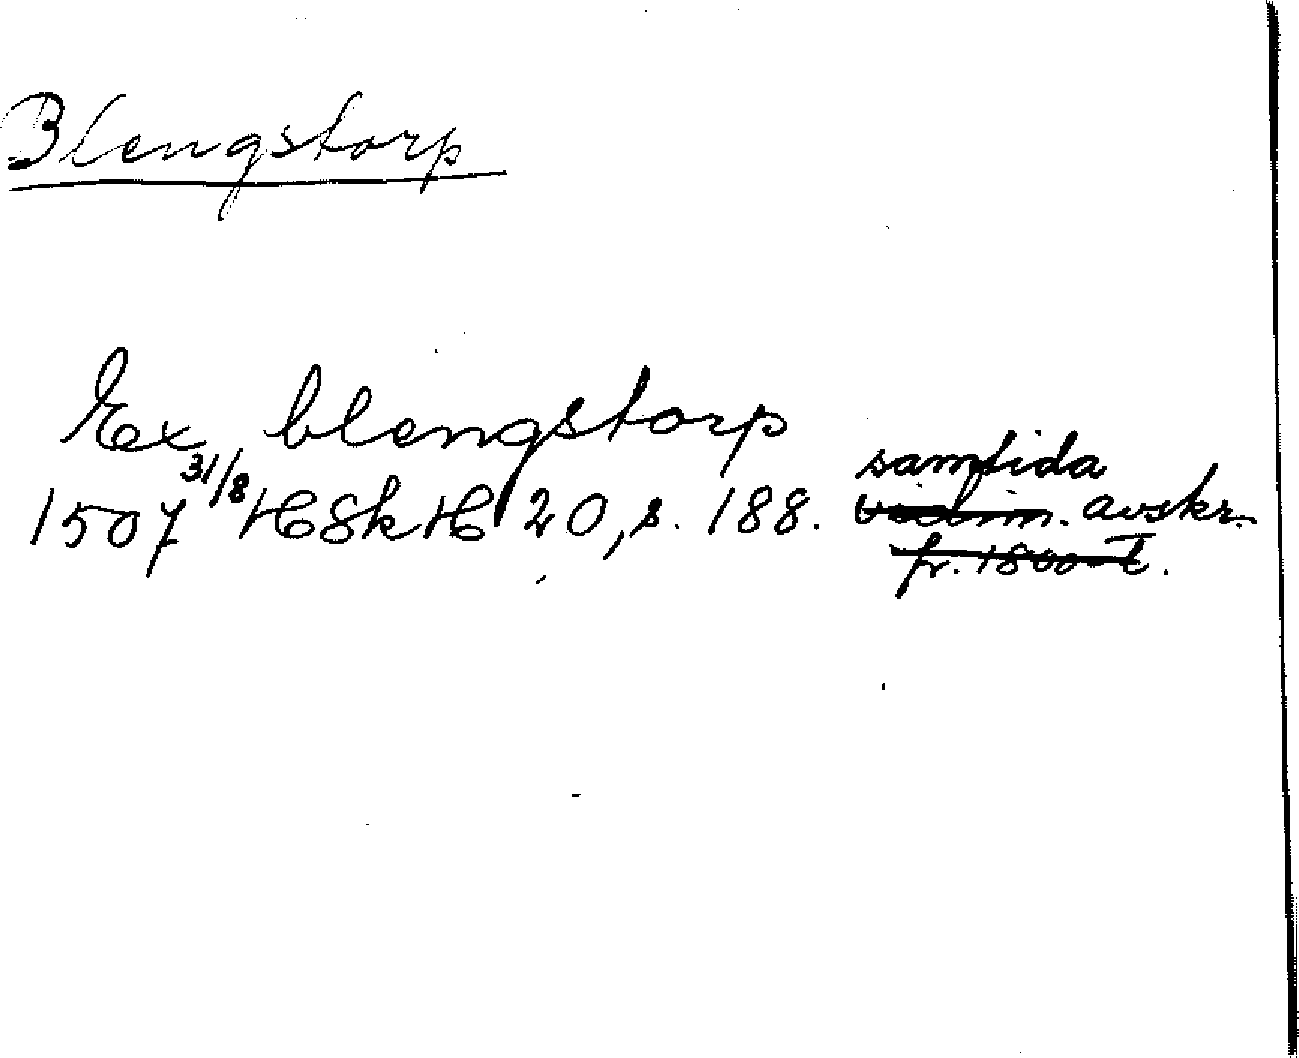 Blengstorp
Ex blengstorp
samtida
1507 31/8 HSkH 20, s. 188. vidim. avskr.
fr. 1800-t.